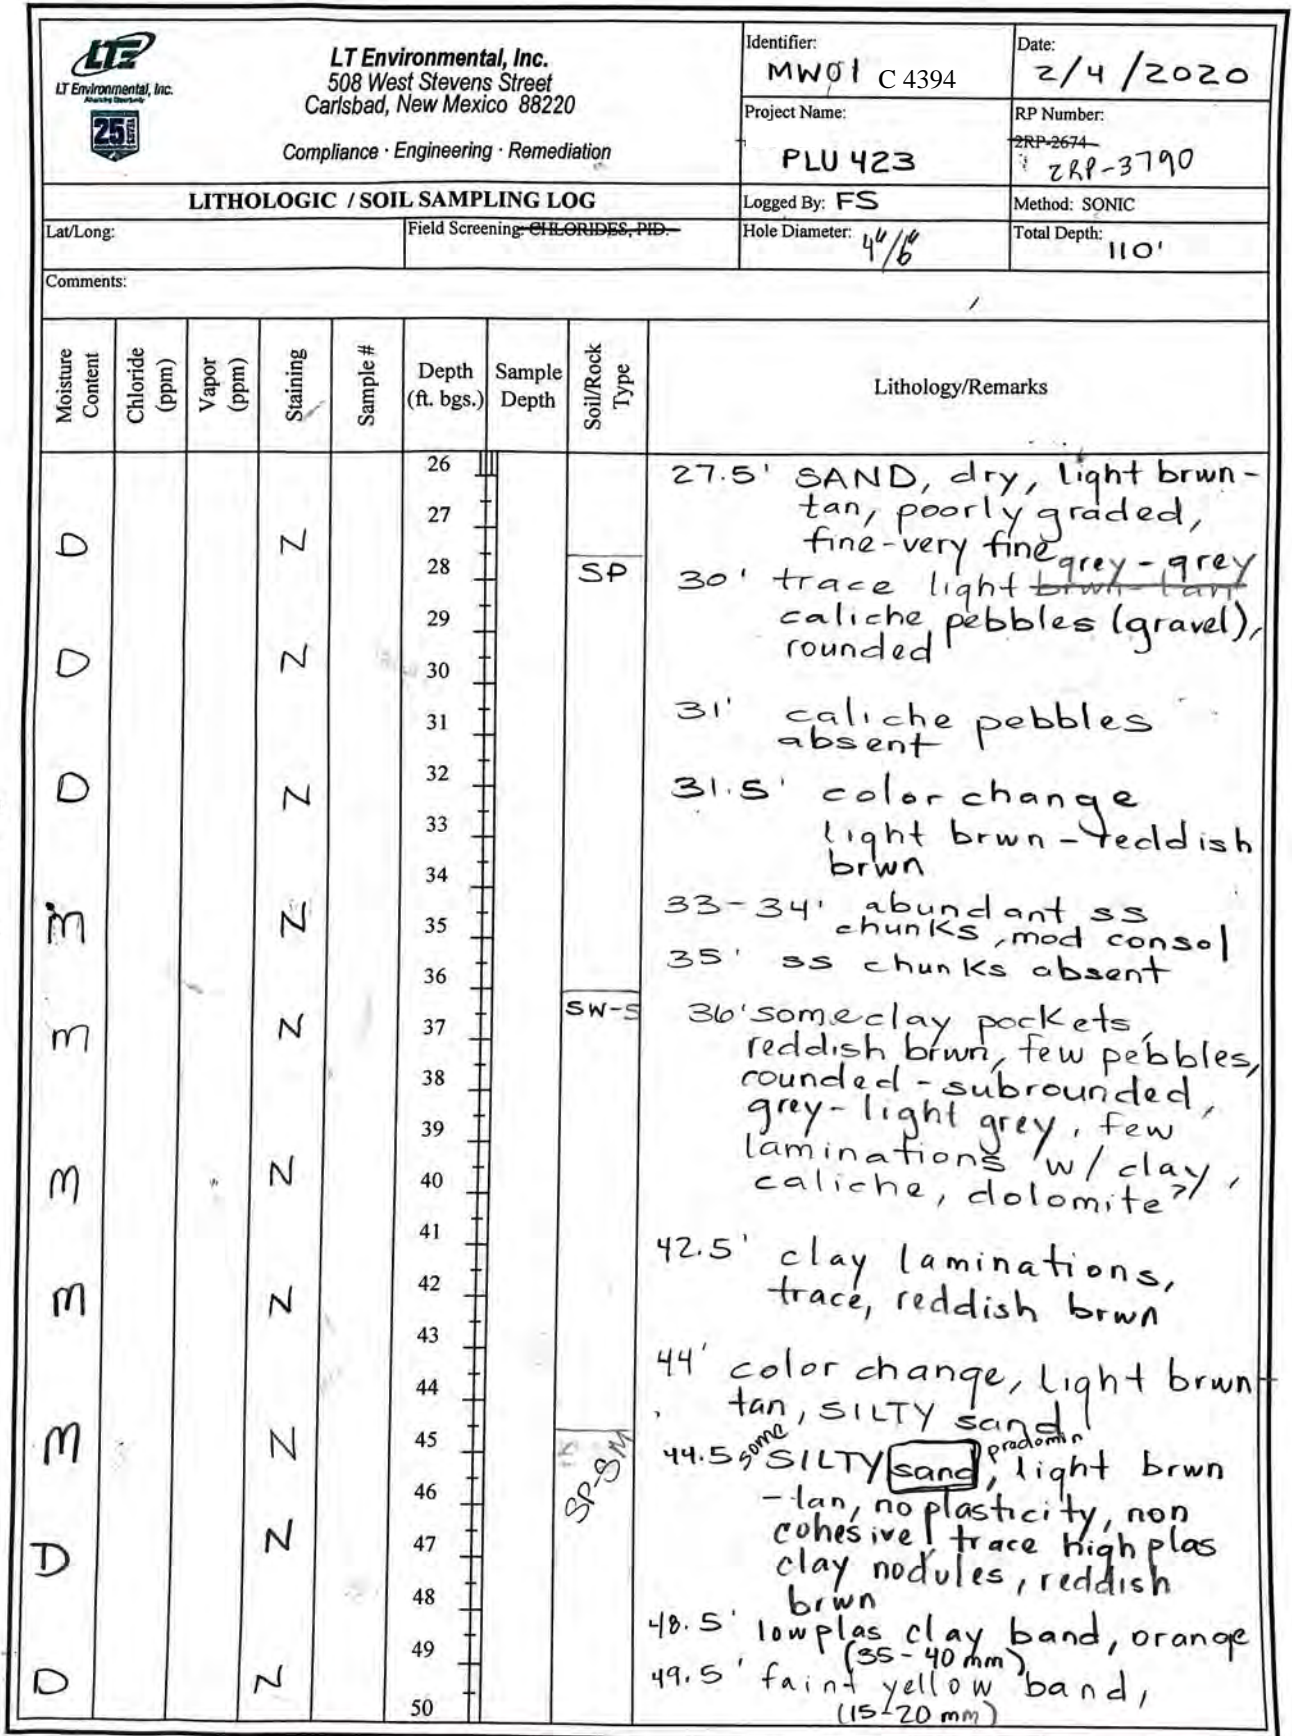 LTE
LT Environmental, Inc.
Advancing Opportunity
25 YEARS
LT Environmental, Inc.
508 West Stevens Street
Carlsbad, New Mexico 88220
Compliance · Engineering · Remediation
Identifier:
MW01 C 4394
Date:
2/4/2020
Project Name:
PLU 423
RP Number:
2RP-2674
2RP-3790
LITHOLOGIC / SOIL SAMPLING LOG
Logged By: FS
Method: SONIC
Lat/Long:
Field Screening: CHLORIDES, PID.
Hole Diameter: 4"/6"
Total Depth: 110'
Comments:
Moisture Content
Chloride (ppm)
Vapor (ppm)
Staining
Sample #
Depth (ft. bgs.)
Sample Depth
Soil/Rock Type
Lithology/Remarks
26
27.5' SAND, dry, light brwn-
27
tan, poorly graded,
D N
fine-very fine
28 SP
grey-grey
30' trace light brwn-tan
29
caliche pebbles (gravel),
D N 30
rounded
31
31' caliche pebbles
absent
D N 32
31.5' color change
33
light brwn-reddish
brwn
34
M N 35
33-34' abundant ss
chunks, mod consol
35' ss chunks absent
36
M N 37 SW-S
36' some clay pockets,
reddish brwn, few pebbles,
38
rounded-subrounded,
39
grey-light grey, few
laminations w/ clay,
M N 40
caliche, dolomite?
41
42.5' clay laminations,
M N 42
trace, reddish brwn
43
44' color change, light brwn
44
tan, SILTY sand
M N 45 SP-SM
44.5' some SILTY sand, predomin
light brwn
46
-tan, no plasticity, non
D N 47
cohesive, trace high plas
clay nodules, reddish
48
brwn
48.5' low plas clay band, orange
49
(35-40 mm)
D N
49.5' faint yellow band,
50
(15-20 mm)